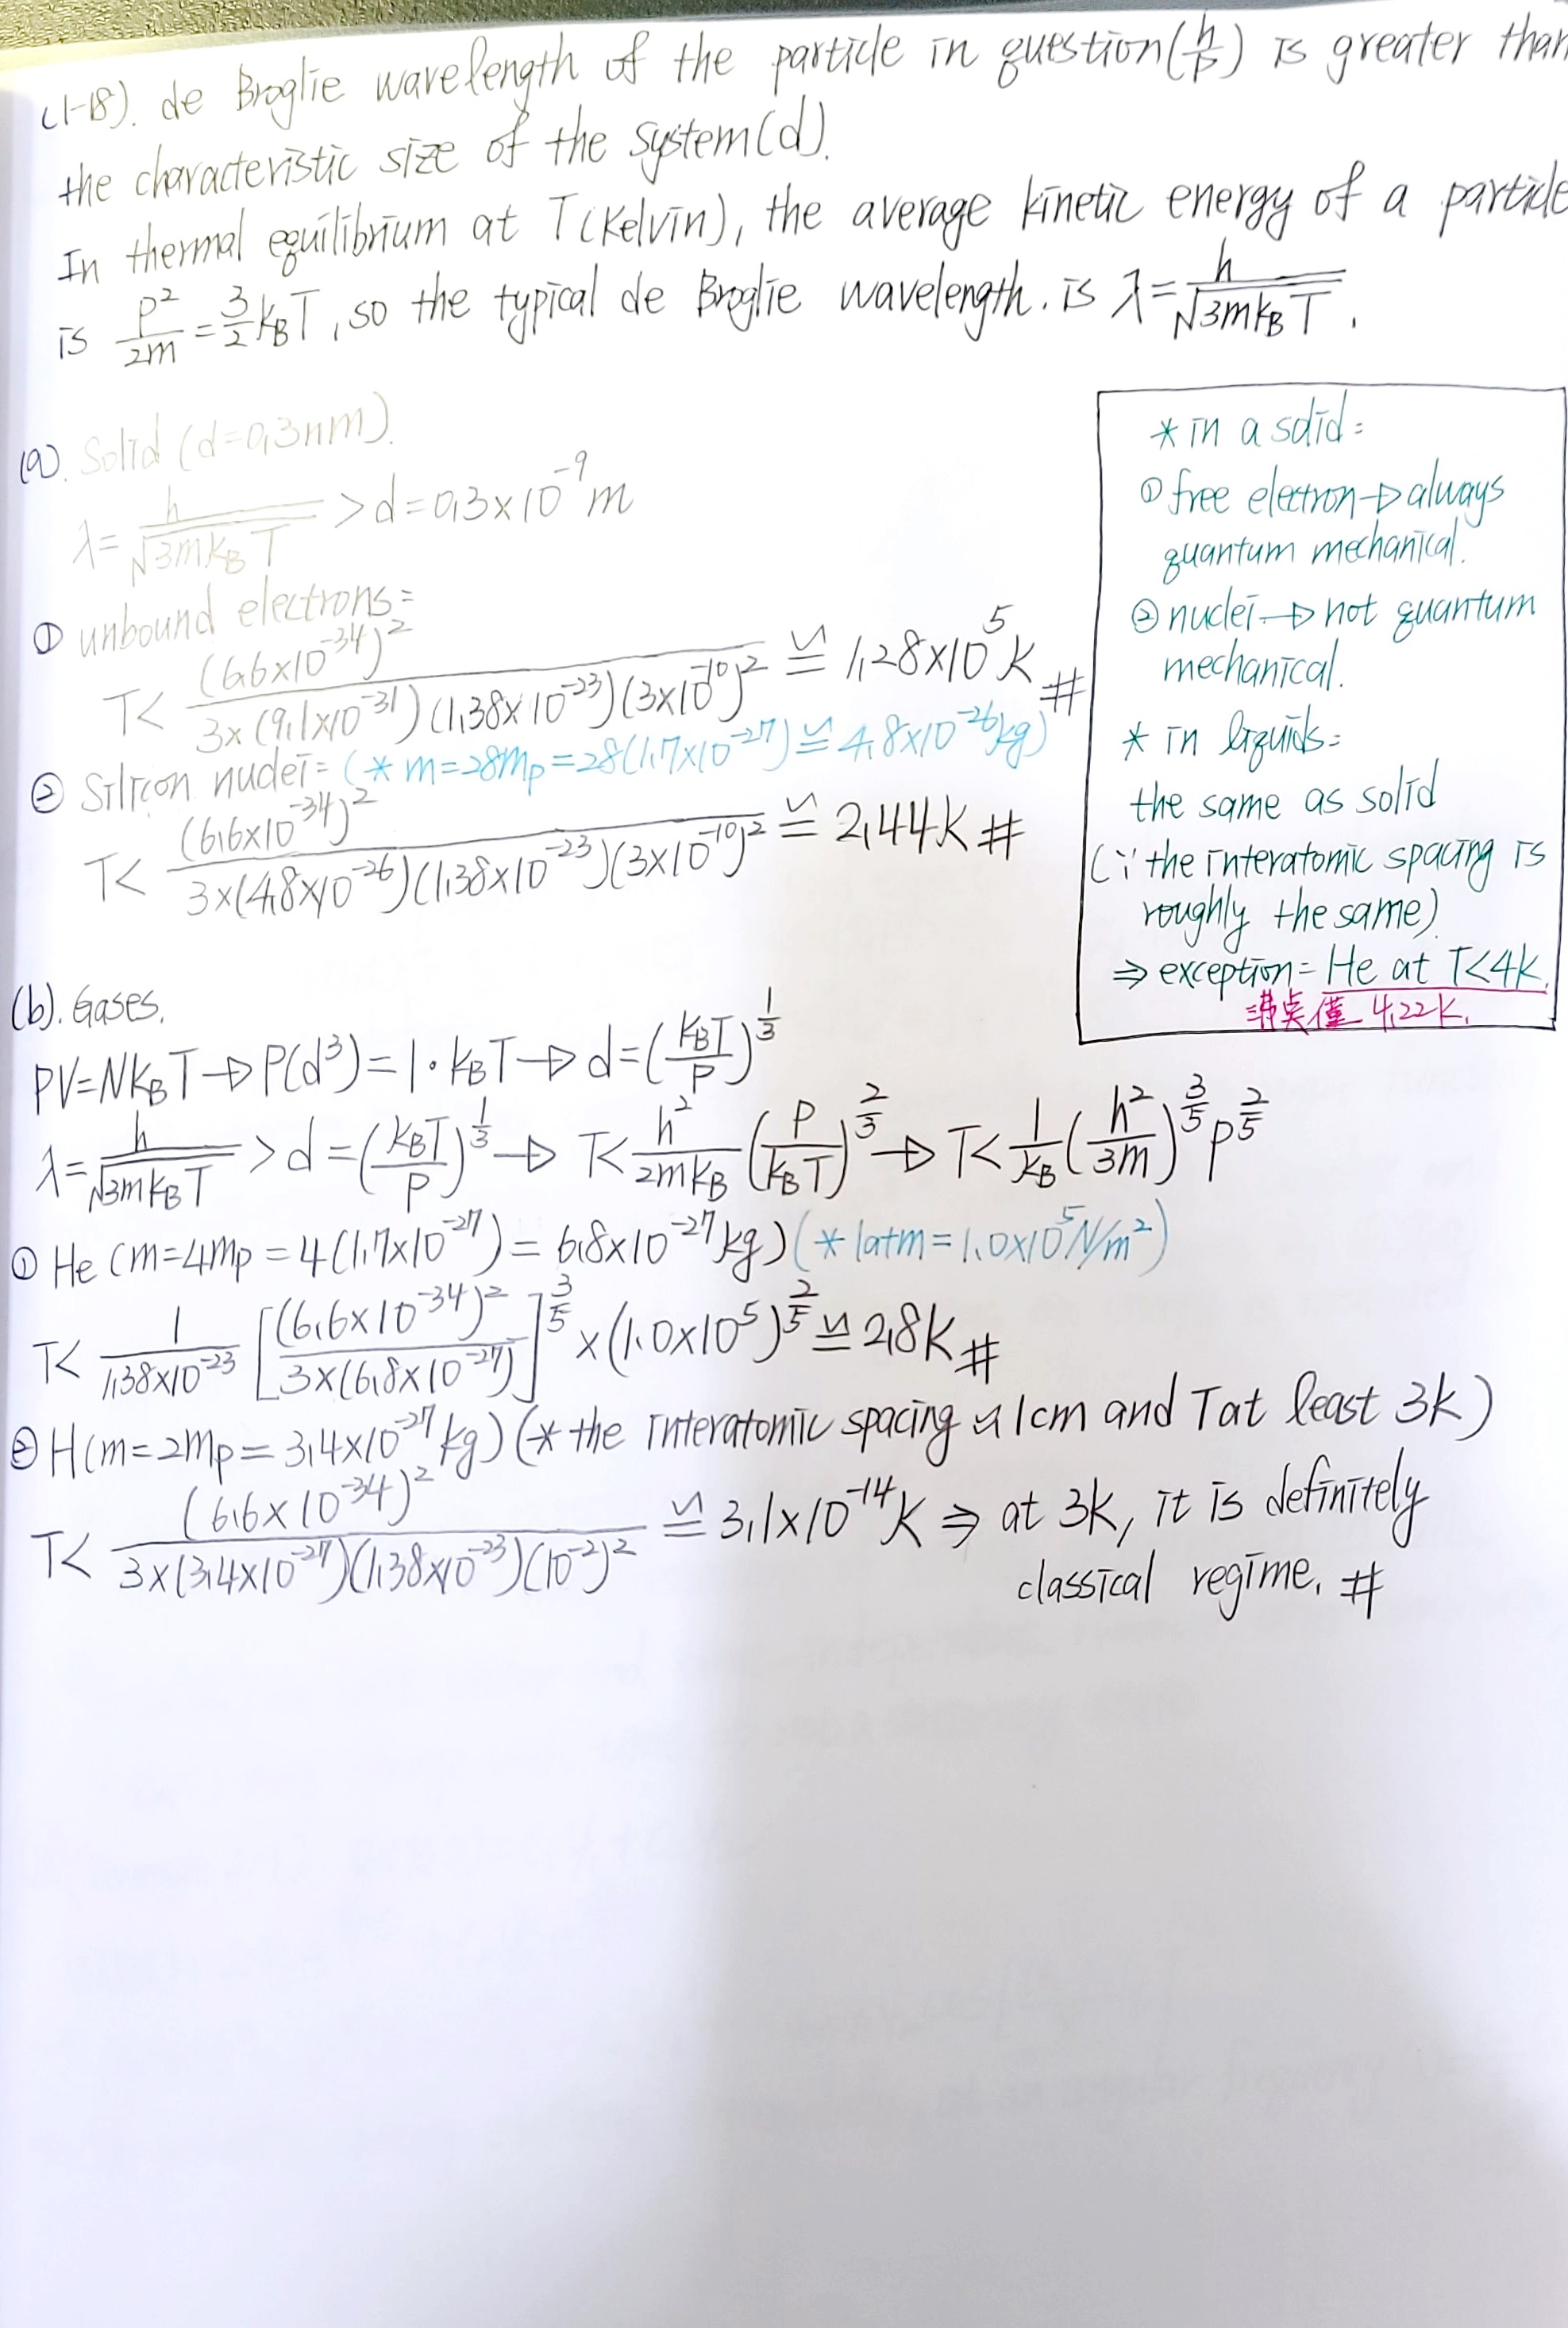 (1-18). de Broglie wavelength of the particle in question(h/p) is greater than
the characteristic size of the system(d).
In thermal equilibrium at T(Kelvin), the average kinetic energy of a particle
is p²/2m = 3/2 k_BT, so the typical de Broglie wavelength. is λ = h/√(3mk_BT).
(a). Solid (d=0.3nm).
λ = h/√(3mk_BT) > d = 0.3×10⁻⁹m
① unbound electrons:
T < (6.6×10⁻³⁴)² / 3×(9.1×10⁻³¹)(1.38×10⁻²³)(3×10⁻¹⁰)² ≌ 1.28×10⁵K #
② Silicon nuclei: (* m=28mp=28(1.7×10⁻²⁷)≌4.8×10⁻²⁶kg)
T < (6.6×10⁻³⁴)² / 3×(4.8×10⁻²⁶)(1.38×10⁻²³)(3×10⁻¹⁰)² ≌ 2.44K #
* in a solid:
① free electron→always
quantum mechanical.
② nuclei→not quantum
mechanical.
* in liquids:
the same as solid
(∵ the interatomic spacing is
roughly the same)
⇒ exception: He at T<4K.
沸點僅 4.22K.
(b). Gases.
PV=Nk_BT → P(d³)=1·k_BT → d=(k_BT/P)^(1/3)
λ = h/√(3mk_BT) > d = (k_BT/P)^(1/3) → T < h²/2mk_B (P/k_BT)^(2/3) → T < 1/k_B (h²/3m)^(3/5) P^(2/5)
① He (m=4mp=4(1.7×10⁻²⁷)=6.8×10⁻²⁷kg) (* 1atm=1.0×10⁵N/m²)
T < 1/1.38×10⁻²³ [(6.6×10⁻³⁴)²/3×(6.8×10⁻²⁷)]^(3/5) × (1.0×10⁵)^(2/5) ≌ 2.8K #
② H(m=2mp=3.4×10⁻²⁷kg) (* the interatomic spacing ≈ 1cm and T at least 3K)
T < (6.6×10⁻³⁴)² / 3×(3.4×10⁻²⁷)(1.38×10⁻²³)(10⁻²)² ≌ 3.1×10⁻¹⁴K ⇒ at 3K, it is definitely
classical regime. #